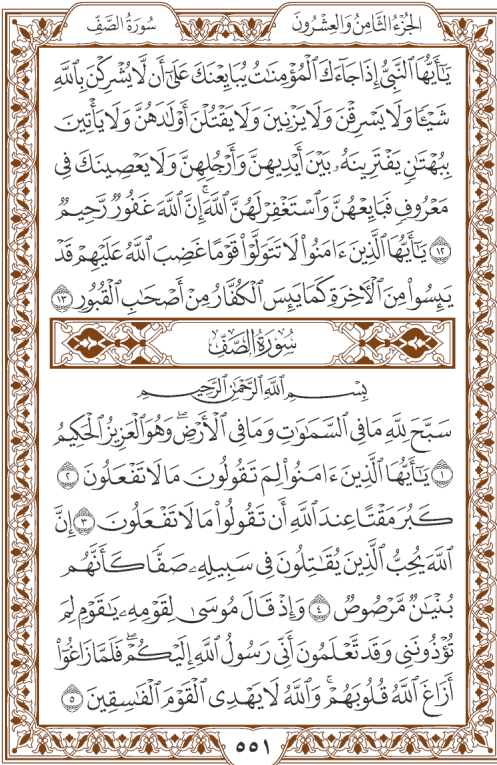 الجُزْءُ الثَّامِنُ وَالعِشْرُونَ سُورَةُ الصَّفِّ
يَٰٓأَيُّهَا ٱلنَّبِىُّ إِذَا جَآءَكَ ٱلْمُؤْمِنَٰتُ يُبَايِعْنَكَ عَلَىٰٓ أَن لَّا يُشْرِكْنَ بِٱللَّهِ
شَيْـًٔا وَلَا يَسْرِقْنَ وَلَا يَزْنِينَ وَلَا يَقْتُلْنَ أَوْلَٰدَهُنَّ وَلَا يَأْتِينَ
بِبُهْتَٰنٍ يَفْتَرِينَهُۥ بَيْنَ أَيْدِيهِنَّ وَأَرْجُلِهِنَّ وَلَا يَعْصِينَكَ فِى
مَعْرُوفٍ فَبَايِعْهُنَّ وَٱسْتَغْفِرْ لَهُنَّ ٱللَّهَ ۖ إِنَّ ٱللَّهَ غَفُورٌ رَّحِيمٌ
١٢ يَٰٓأَيُّهَا ٱلَّذِينَ ءَامَنُوا۟ لَا تَتَوَلَّوْا۟ قَوْمًا غَضِبَ ٱللَّهُ عَلَيْهِمْ قَدْ
يَئِسُوا۟ مِنَ ٱلْءَاخِرَةِ كَمَا يَئِسَ ٱلْكُفَّارُ مِنْ أَصْحَٰبِ ٱلْقُبُورِ ١٣
سُورَةُ الصَّفِّ
بِسْمِ ٱللَّهِ ٱلرَّحْمَٰنِ ٱلرَّحِيمِ
سَبَّحَ لِلَّهِ مَا فِى ٱلسَّمَٰوَٰتِ وَمَا فِى ٱلْأَرْضِ ۖ وَهُوَ ٱلْعَزِيزُ ٱلْحَكِيمُ
١ يَٰٓأَيُّهَا ٱلَّذِينَ ءَامَنُوا۟ لِمَ تَقُولُونَ مَا لَا تَفْعَلُونَ ٢
كَبُرَ مَقْتًا عِندَ ٱللَّهِ أَن تَقُولُوا۟ مَا لَا تَفْعَلُونَ ٣ إِنَّ
ٱللَّهَ يُحِبُّ ٱلَّذِينَ يُقَٰتِلُونَ فِى سَبِيلِهِۦ صَفًّا كَأَنَّهُم
بُنْيَٰنٌ مَّرْصُوصٌ ٤ وَإِذْ قَالَ مُوسَىٰ لِقَوْمِهِۦ يَٰقَوْمِ لِمَ
تُؤْذُونَنِى وَقَد تَّعْلَمُونَ أَنِّى رَسُولُ ٱللَّهِ إِلَيْكُمْ ۖ فَلَمَّا زَاغُوٓا۟
أَزَاغَ ٱللَّهُ قُلُوبَهُمْ ۚ وَٱللَّهُ لَا يَهْدِى ٱلْقَوْمَ ٱلْفَٰسِقِينَ ٥
٥٥١